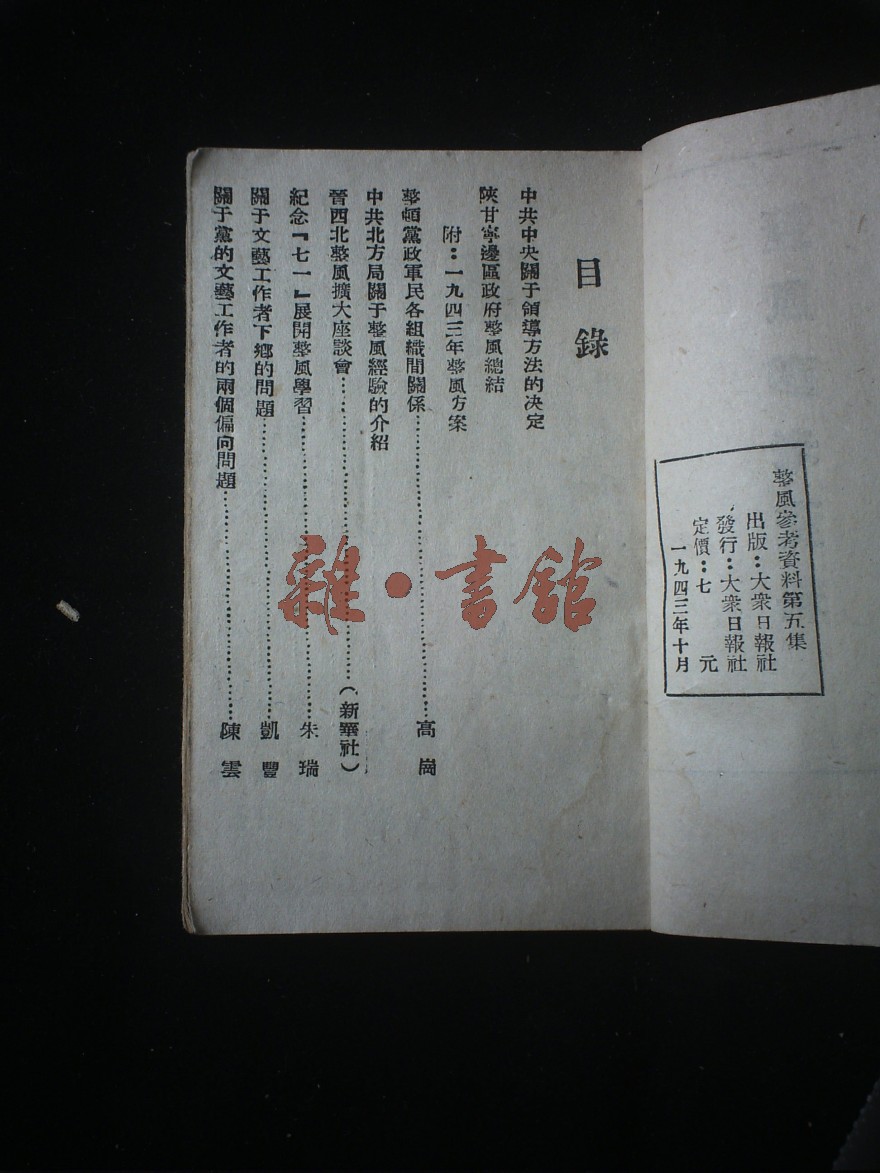 整風參考資料第五集
出版：大衆日報社
發行：大衆日報社
定價：七 元
一九四三年十月
目錄
中共中央關于領導方法的決定
陝甘寧邊區政府整風總結
附：一九四三年整風方案
整頓黨政軍民各組織間關係……高崗
中共北方局關于整風經驗的介紹
晉西北整風擴大座談會……（新華社）
紀念『七一』展開整風學習……朱瑞
關于文藝工作者下鄉的問題……凱豐
關于黨的文藝工作者的兩個偏向問題……陳雲
雜·書館